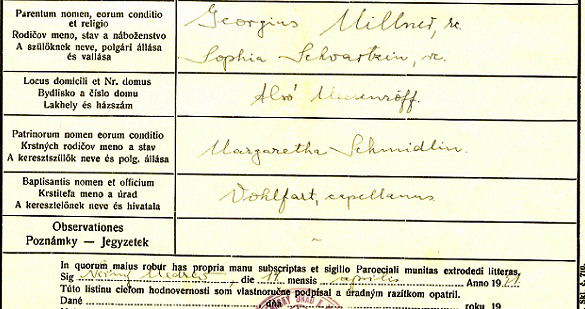 Parentum nomen, eorum conditio
et religio
Rodičov meno, stav a náboženstvo
A szülőknek neve, polgári állása
és vallása
Georgius Millner, rc.
Sophia Schvartzin, rc.
Locus domicilii et Nr. domus
Bydlisko a číslo domu
Lakhely és házszám
Alsó
Patrinorum nomen eorum conditio
Krstných rodičov meno a stav
A keresztszülők neve és polg. állása
Margaretha Schmidlin.
Baptisantis nomen et officium
Krstiteľa meno a úrad
A keresztelőnek neve és hivatala
Vohlfart, capellanus
Observationes
Poznámky — Jegyzetek
–
In quorum maius robur has propria manu subscriptas et sigillo Paroeciali munitas extrodedi litteras.
Sig , die mensis aprilis Anno 19
Túto listinu cieľom hodnovernosti som vlastnoručne podpísal a úradným razítkom opatril.
Dané dňa roku 19